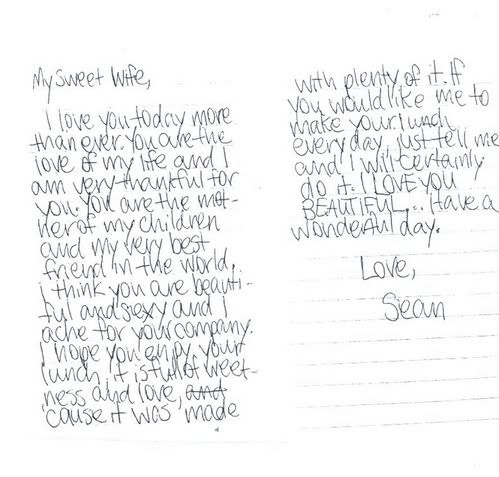 My sweet wife,
I love you today more
than ever. You are the
love of my life and I
am very thankful for
you. You are the mot-
her of my children
and my very best
friend in the world.
i think you are beauti-
ful and sexy and I
ache for your company.
I hope you enjoy your
lunch, it is full of sweet-
ness and love, and
'cause it was made
with plenty of it. If
you would like me to
make your lunch
every day, just tell me
and I will certainly
do it. I LOVE YOU
BEAUTIFUL... Have a
wonderful day.
Love,
Sean